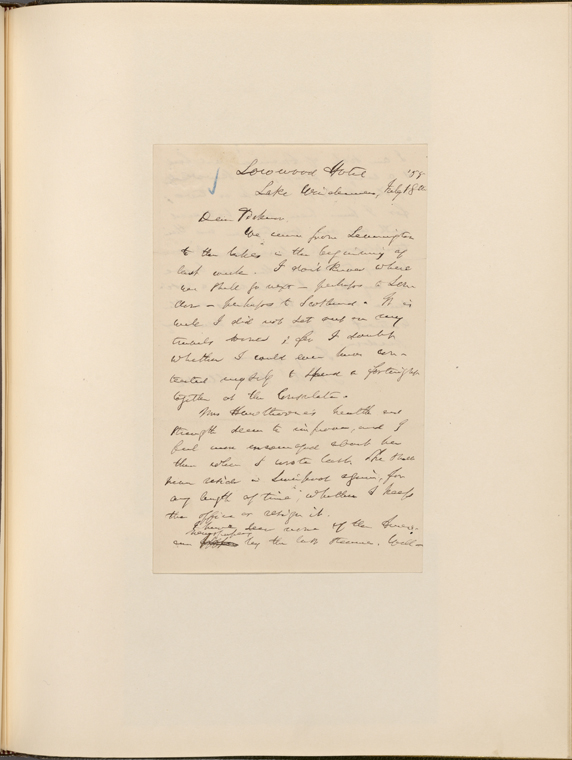 Lowwood Hotel '55
Lake Windermere, July 18th
Dear Ticknor,
We came from Leamington
to the lakes in the beginning of
last week. I don't know where
we shall go next — perhaps to Lon-
don — perhaps to Scotland. It is
well I did not set out on my
travels sooner; for I doubt
whether I could ever have con-
tented myself to spend a fortnight
together at the Consulate.
Mrs Hawthorne's health and
strength seem to improve, and I
feel more encouraged about her
than when I wrote last. She shall
never reside in Liverpool again, for
any length of time, whether I keep
the office or resign it.
I have seen none of the Ameri-
newspapers
can by the last steamer. Will-